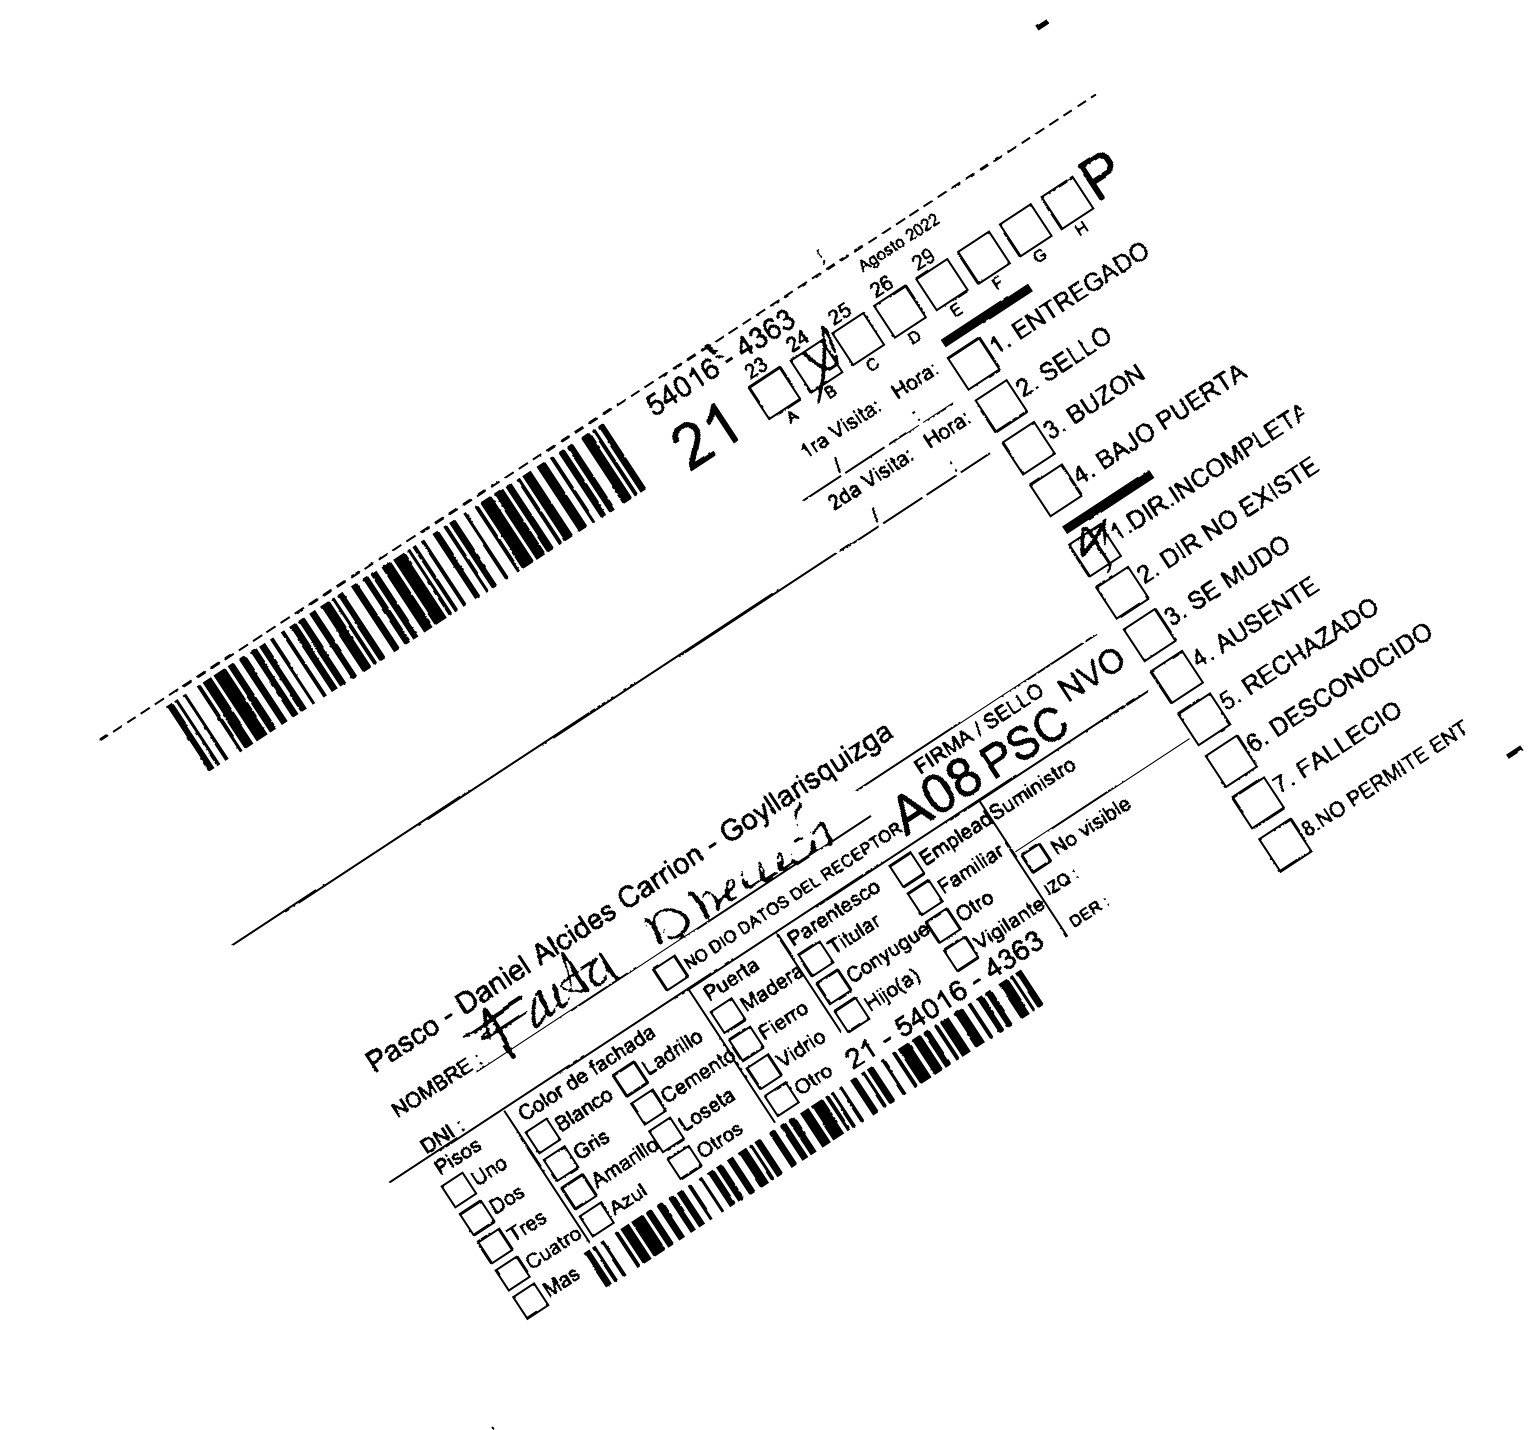 54016 - 4363
Agosto 2022
21
23 24 25 26 29
A B C D E F G H
P
1ra Visita: Hora:
2da Visita: Hora:
1. ENTREGADO
2. SELLO
3. BUZON
4. BAJO PUERTA
1.DIR.INCOMPLETA
2. DIR NO EXISTE
3. SE MUDO
4. AUSENTE
5. RECHAZADO
6. DESCONOCIDO
7. FALLECIO
8.NO PERMITE ENT
Pasco - Daniel Alcides Carrion - Goyllarisquizga
NOMBRE: Falta
FIRMA / SELLO
NVO
DNI :
NO DIO DATOS DEL RECEPTOR
A08 PSC
Pisos
Uno
Dos
Tres
Cuatro
Mas
Color de fachada
Blanco
Gris
Amarillo
Azul
Ladrillo
Cemento
Loseta
Otros
Puerta
Madera
Fierro
Vidrio
Otro
Parentesco
Titular
Conyugue
Hijo(a)
Emplead
Familiar
Otro
Vigilante
Suministro
No visible
IZQ :
DER :
21 - 54016 - 4363